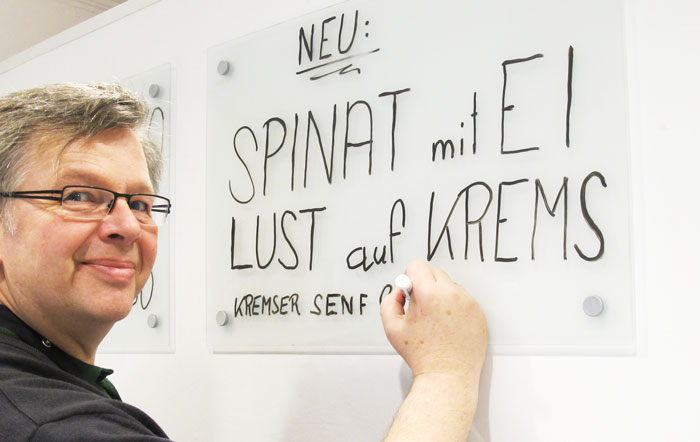 NEU:
SPINAT mit EI
LUST auf KREMS
KREMSER SENF